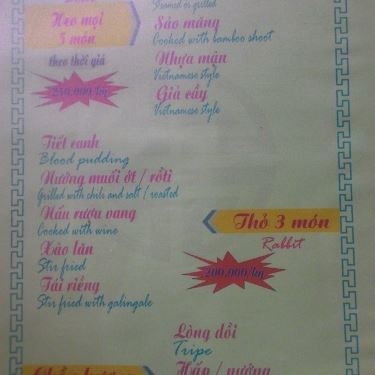 Steamed or grilled
Heo mọi
3 món
Sào măng
Cooked with bamboo shoot
theo thời giá
Nhựa mận
Vietnamese style
250,000/kg
Giả cầy
Vietnamese style
Tiết canh
Blood pudding
Nướng muối ớt / rôti
Grilled with chili and salt / roasted
Nấu rượu vang
Cocked with wine
Xào lăn
Stir fried
Tái riềng
Stir fried with galingale
Thỏ 3 món
Rabbit
200,000/kg
Lòng dồi
Tripe
Hấp / nướng